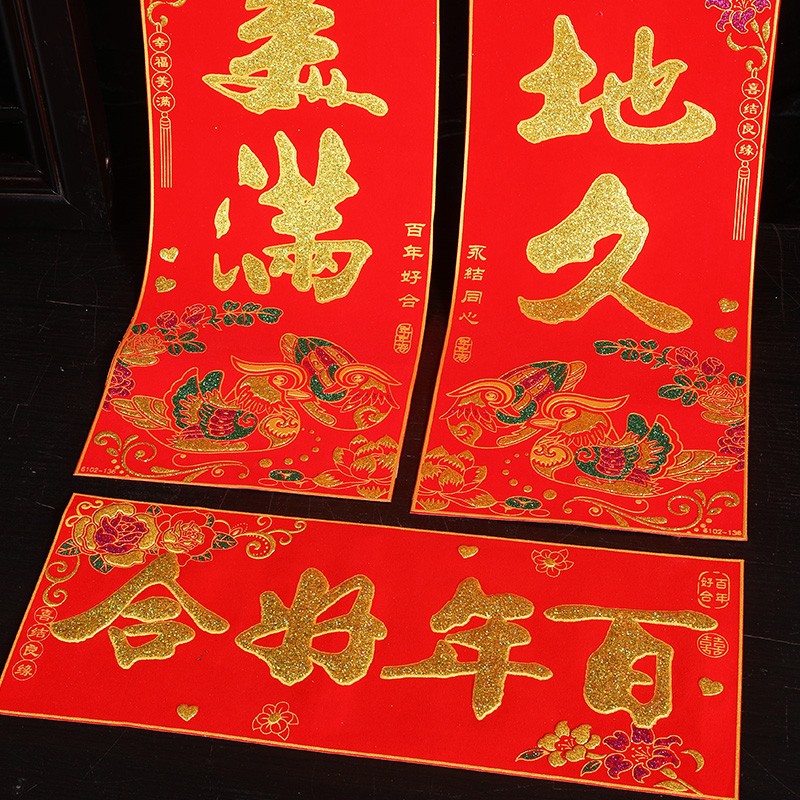 美满
幸福美满
百年好合
6102-136
地久
喜结良缘
永结同心
6102-136
百年好合
百年好合
囍
喜结良缘